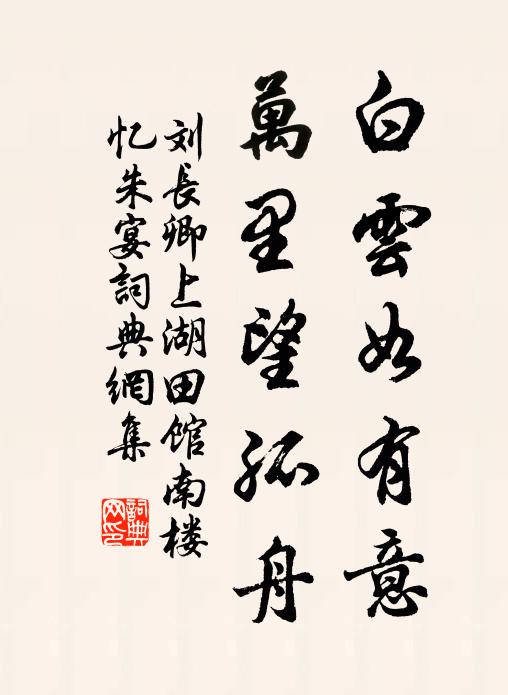 白雲如有意
萬里望孤舟
刘長卿上湖田馆南楼
忆朱宴詞典網集
詞典
网印